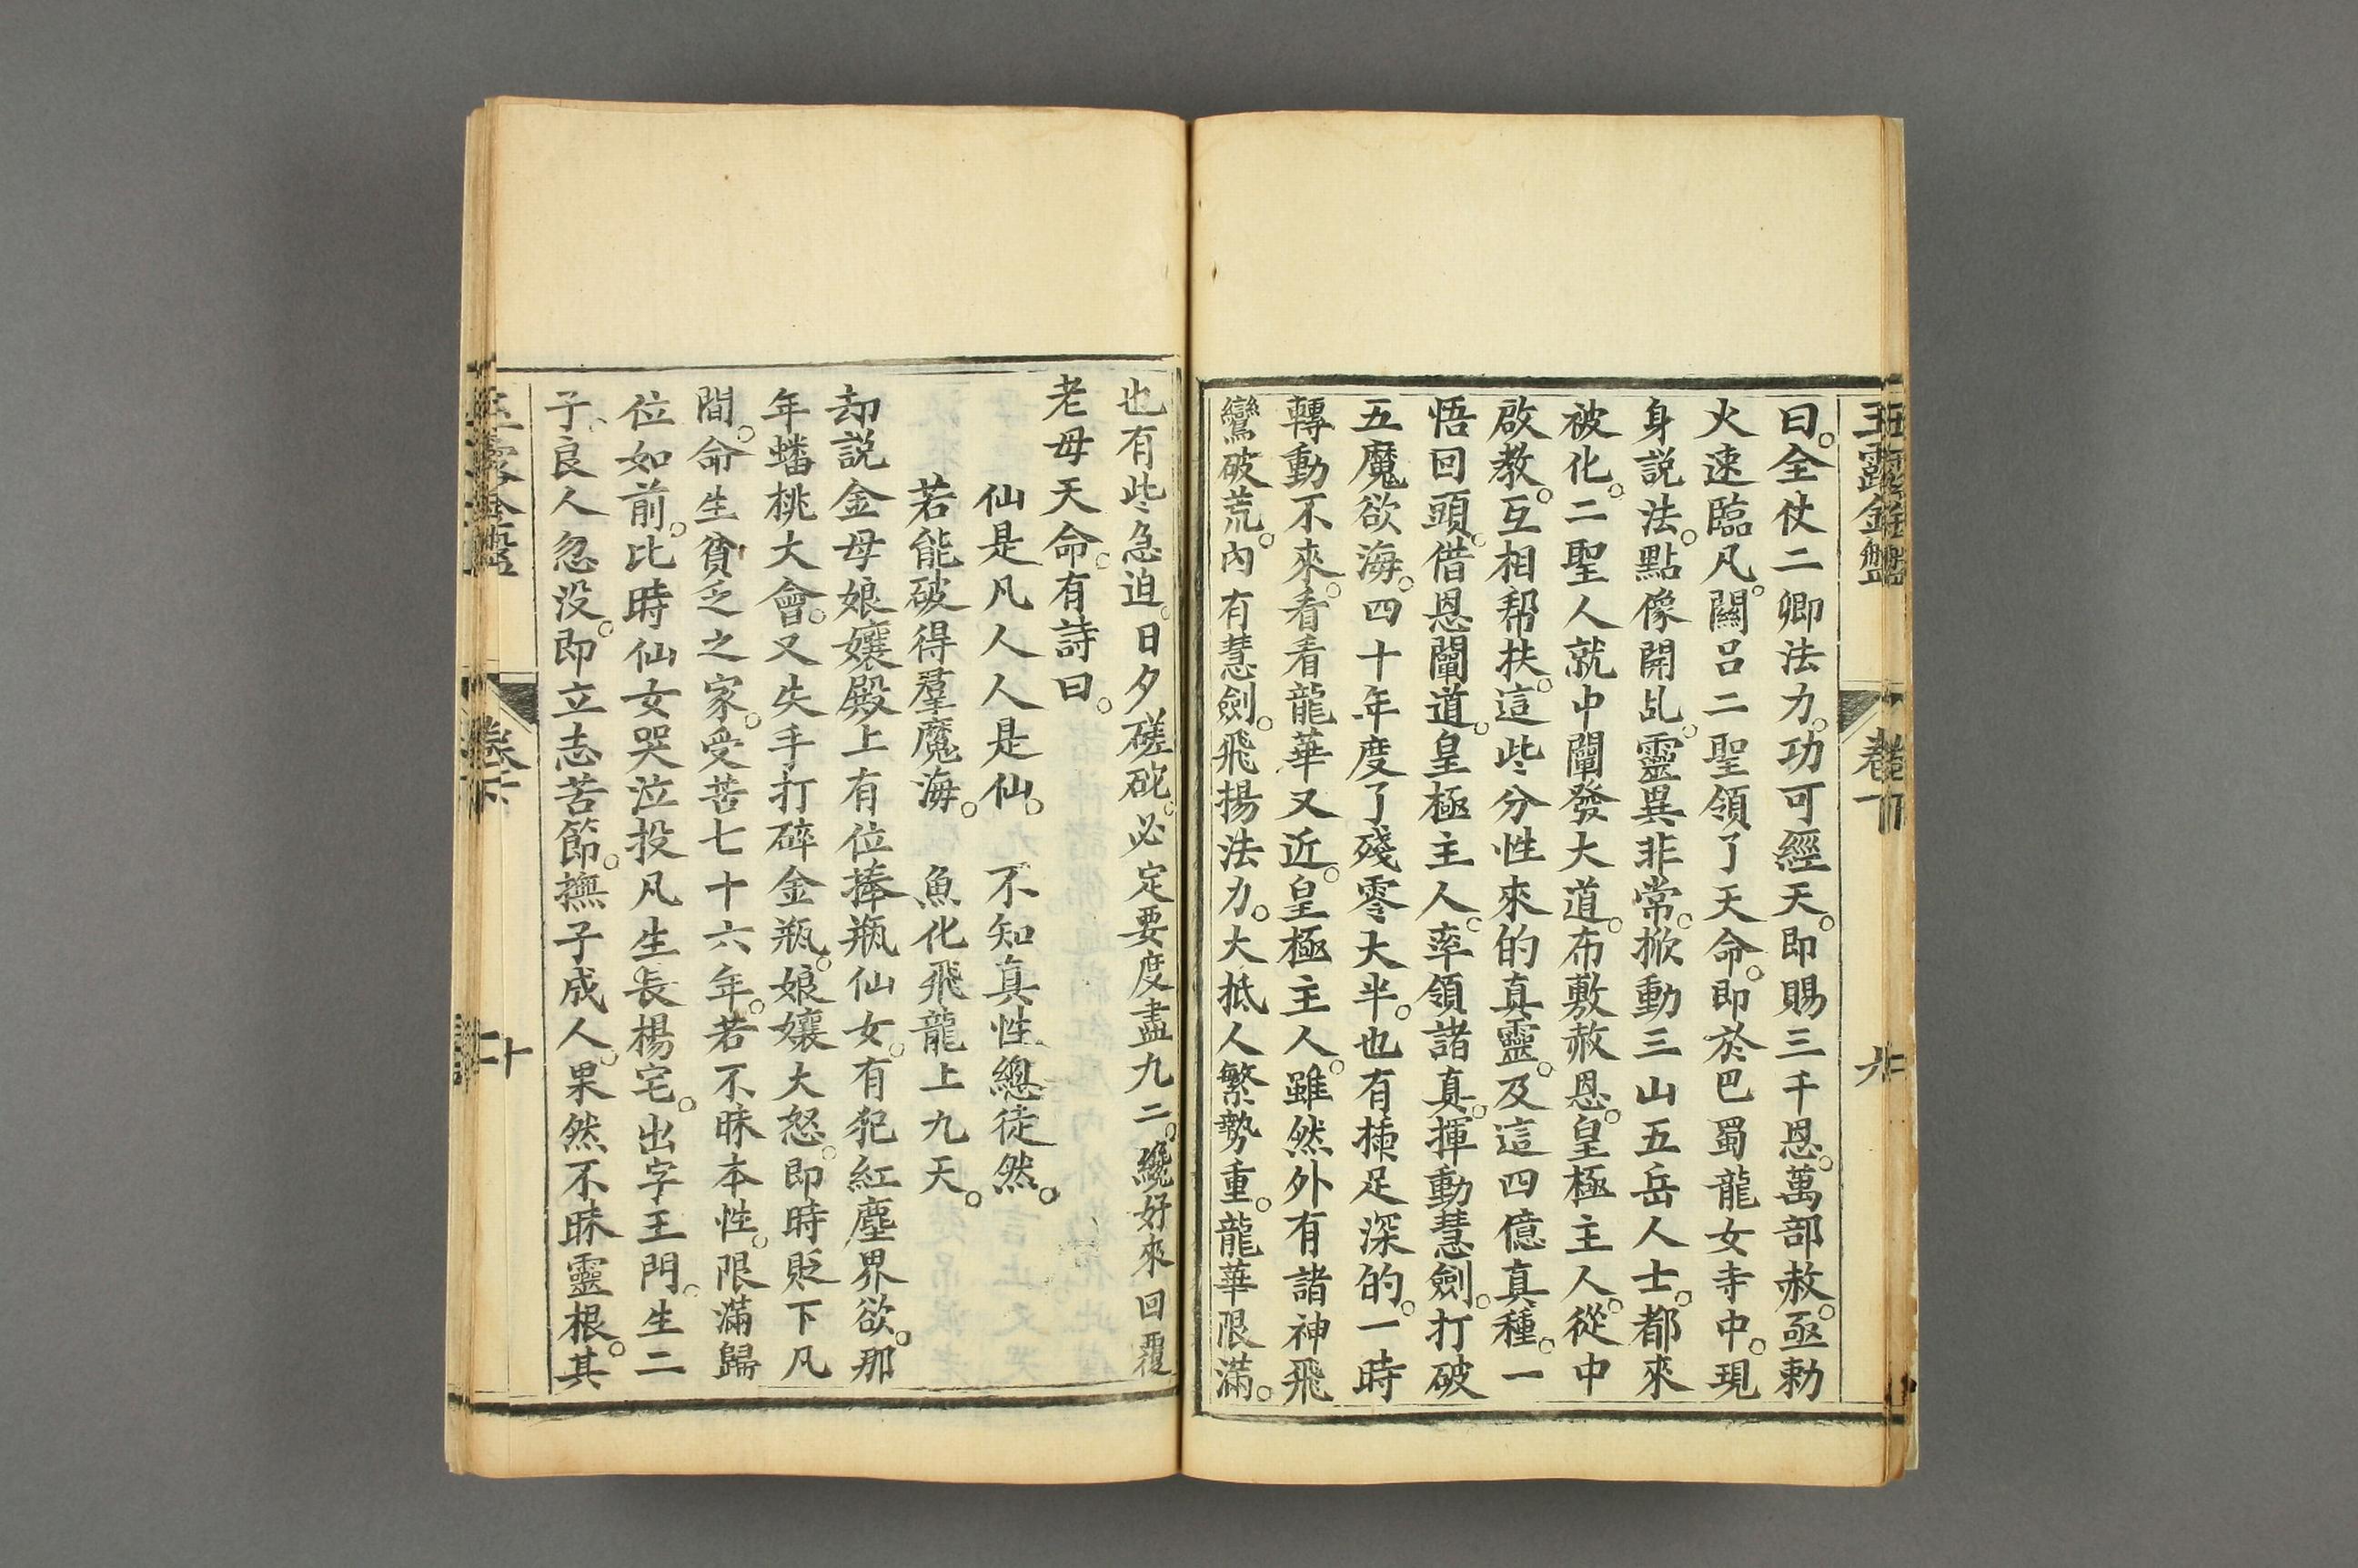 玉露金盤
卷下
曰。全仗二卿法力。功可經天。即賜三千恩。萬部赦。亟勅
火速臨凡。關呂二聖領了天命。即於巴蜀龍女寺中。現
身說法。點像開乩。靈異非常。掀動三山五岳人士。都來
被化。二聖人就中闡發大道。布敷赦恩。皇極主人。從中
啟教。互相帮扶。這些分性來的真靈。及這四億真種。一
悟回頭。借恩闡道。皇極主人。率領諸真。揮動慧劍。打破
五魔欲海。四十年度了殘零大半。也有揀足深的。一時
轉動不來。看看龍華又近。皇極主人。雖然外有諸神飛
鸞破荒。內有慧劍。飛揚法力。大抵人繁勢重。龍華限滿。
也有些急迫。日夕磋砣。必定要度盡九二。纔好來回覆
老母天命。有詩曰。
仙是凡人人是仙。　不知真性總徒然。
若能破得羣魔海。　魚化飛龍上九天。
却説金母娘孃殿上有位捧瓶仙女。有犯紅塵界欲。那
年蟠桃大會。又失手打碎金瓶。娘孃大怒。即時貶下凡
間。命生貧乏之家。受苦七十六年。若不昧本性。限滿歸
位如前。比時仙女哭泣投凡生長楊宅。出字王門。生二
子。良人忽没。即立志苦節。撫子成人。果然不昧靈根。其
玉露金盤
卷下
二十